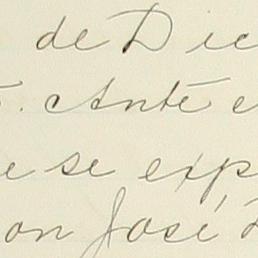 de Dic
. Anté e
e se exp
on José,